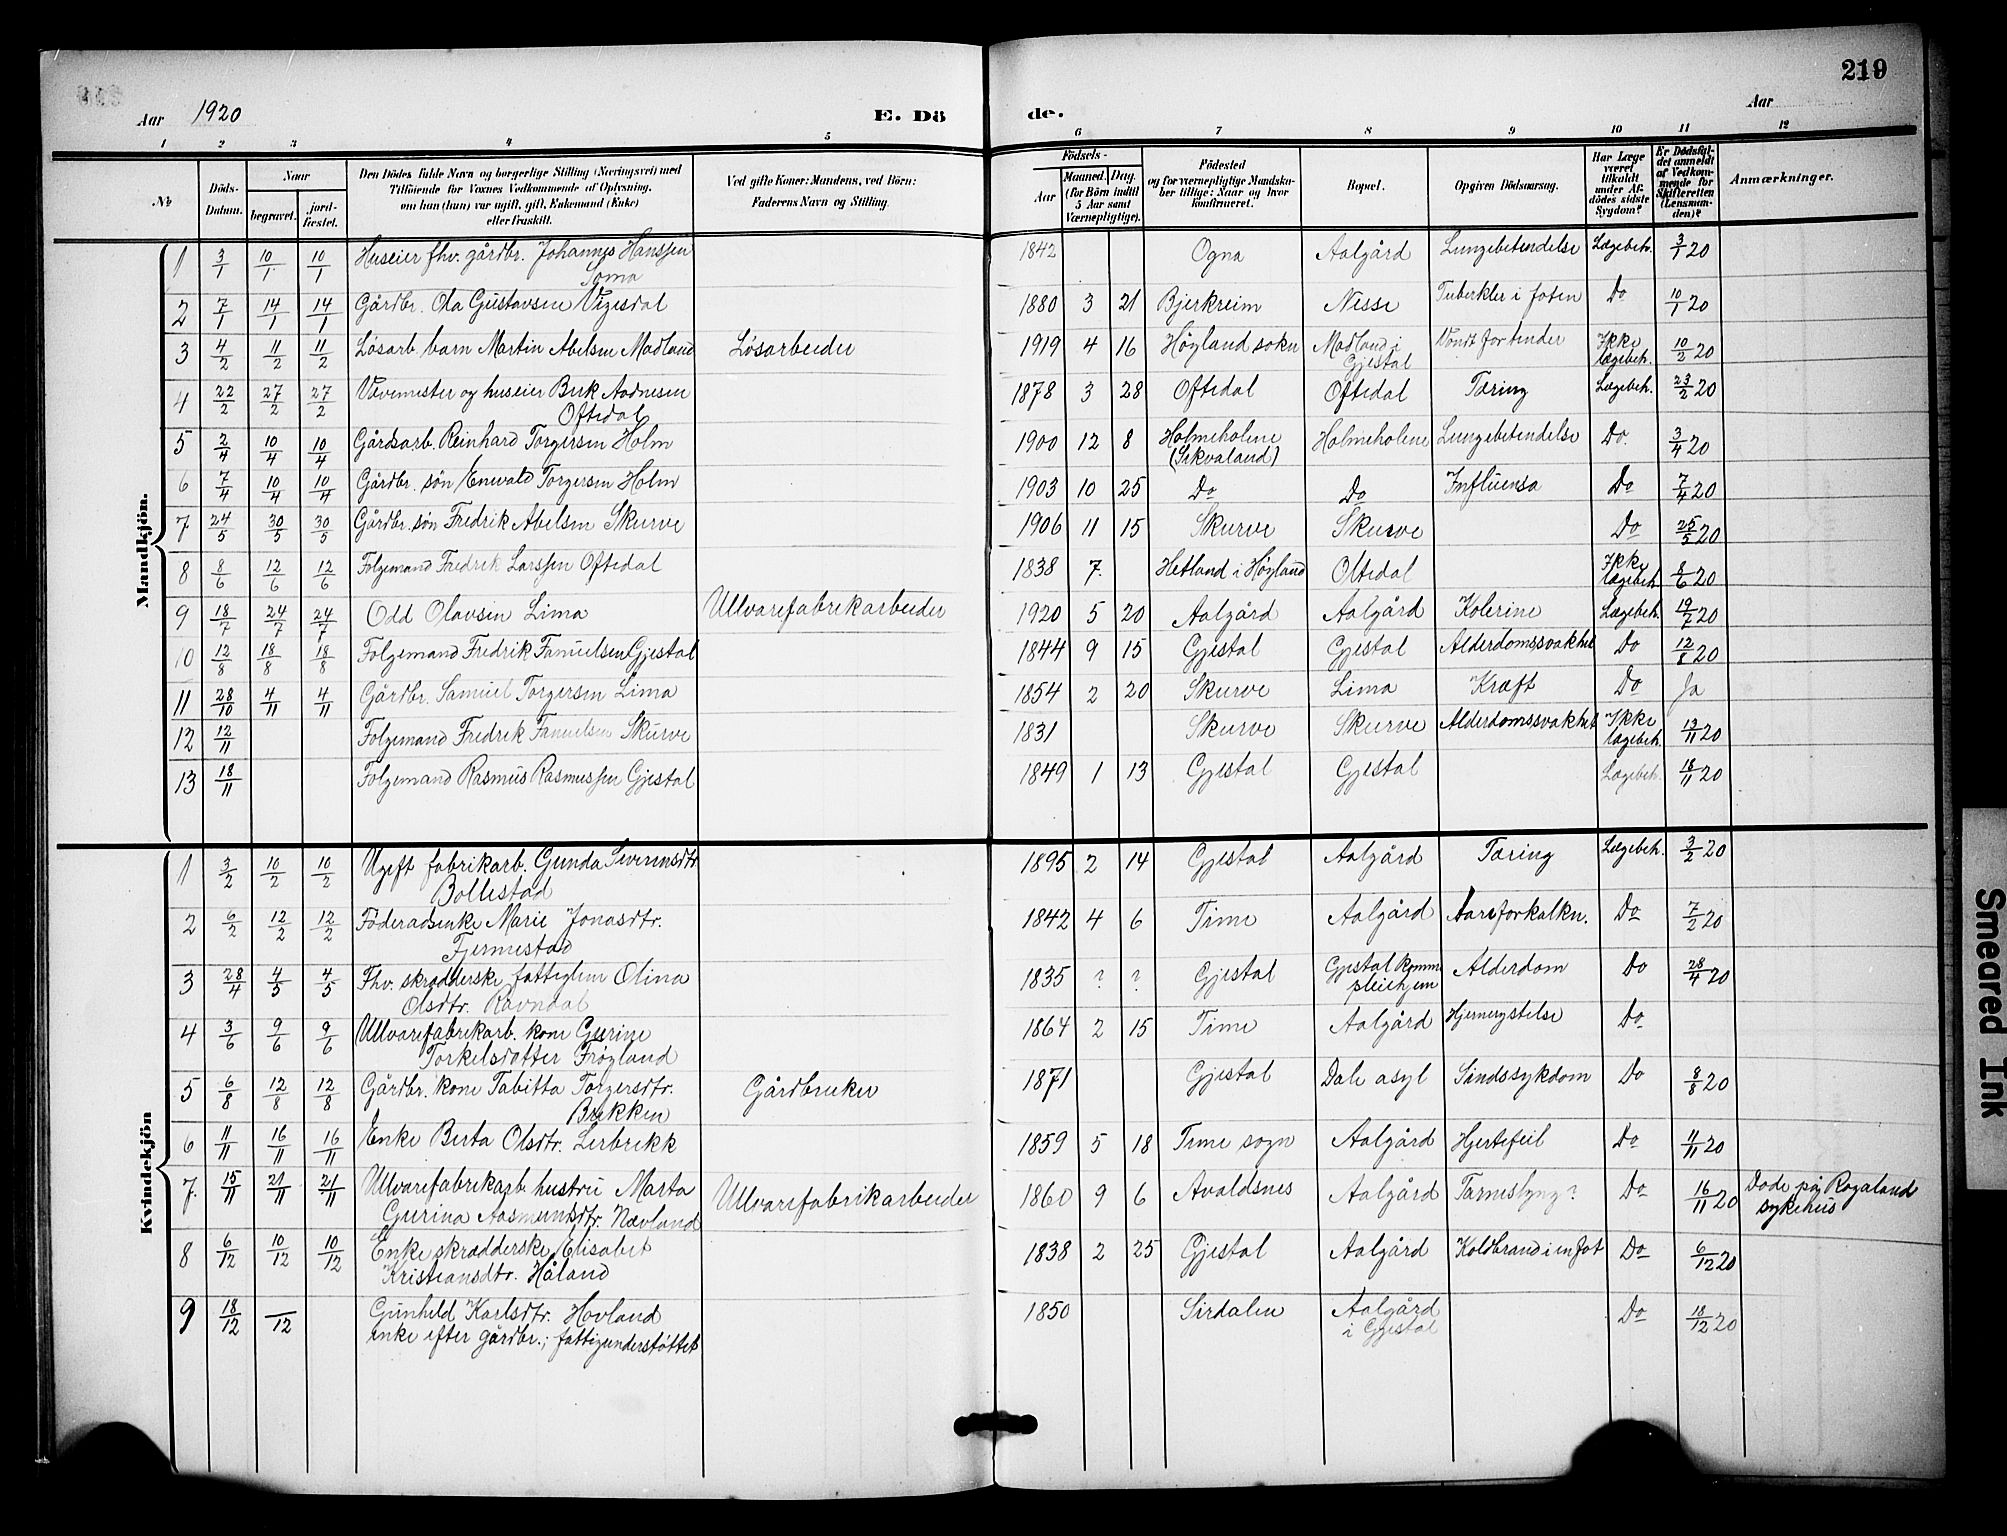 219
Aar 1920
E. Dö
de.
Aar
1 2 3 4 5 6 7 8 9 10 11 12
№
Döds-Datum.
Naar
begravet.
jord-fæstet.
Den Dödes fulde Navn og borgerlige Stilling (Næringsvei) med
Tilföiende för Voxnes Vedkommende af Oplysning,
om han (hun) var ugift, gift, Enkemand (Enke)
eller fraskilt.
Ved gifte Koner: Mandens, ved Börn:
Faderens Navn og Stilling.
Födsels-
Aar
Maaned. Dag.
(för Börn indtil
5 Aar samt
Værnepligtige).
Födested
og for værnepligtige Mandska-
ber tillige: Naar og hvor
konfirmeret.
Bopæl.
Opgiven Dödsaarsag.
Har Læge
været
tilkaldt
under Af-
dödes sidste
Sygdom?
Er Dødsfal-
det anmeldt
af Vedkom-
mende for
Skifteretten
(Lensman-
den)?
Anmærkninger.
Mandkjön.
1 3/1 10/1 10/1 Huseier fhv. gårdbr. Johannes Hanssen 1842 Ogna Aalgård Lungebetendelse Lægebeh. 3/1 20
Soma
2 7/1 14/1 14/1 Gårdbr. Ola Gustavsen Vigesdal 1880 3 21 Bjerkreim Nesse Tuberkler i foten Do 10/1 20
3 4/2 11/2 11/2 Løsarb. barn Martin Abelsen Madland Løsarbeider 1919 4 16 Høyland sokn Madland i Gjestal Vondt for tender Ikke lægebeh. 10/2 20
4 22/2 27/2 27/2 Vævemester og huseier Berk Aadnesen 1878 3 28 Oftedal Oftedal Tæring Lægebeh. 23/2 20
Oftedal
5 2/4 10/4 10/4 Gårdsarb. Reinhard Torgersen Holm 1900 12 8 Holmeholene (Sikvaland) Holmeholene Lungebetendelse Do. 3/4 20
6 7/4 10/4 10/4 Gårdbr. søn Enevald Torgersen Holm 1903 10 25 Do Do Influensa Do 7/4 20
7 24/5 30/5 30/5 Gårdbr. søn Fredrik Abelsen Skurve 1906 11 15 Skurve Skurve Do 25/5 20
8 8/6 12/6 12/6 Folgemand Fredrik Larssen Oftedal 1838 7. Hetland i Høyland Oltedal Ikke lægebeh. 8/6 20
9 18/7 24/7 24/7 Odd Olavsen Lima Ullvarefabrikarbeider 1920 5 20 Aalgård Aalgård Kolerine Lægebeh. 19/7 20
10 12/8 18/8 18/8 Folgemand Fredrik Fanuelsen Gjestal 1844 9 15 Gjestal Gjestal Alderdomssvakhet Do 12/8 20
11 28/10 4/11 4/11 Gårdbr. Samuel Torgersen Lima 1854 2 20 Skurve Lima Kræft Do Ja
12 12/11 Folgemand Fredrik Fanuelsen Skurve 1831 Skurve Skurve Alderdomssvakhet Ikke lægebeh. 13/11 20
13 18/11 Folgemand Rasmus Rasmussen Gjestal 1849 1 13 Gjestal Gjestal Lægebeh. 18/11 20
Kvindekjön
1 3/2 10/2 10/2 Ugift fabrikarb. Gunda Severinsdtr 1895 2 14 Gjestal Aalgård Tæring Lægebeh. 3/2 20
Bollestad
2 6/2 12/2 12/2 Föderadsenke Marie Jonasdtr. 1842 4 6 Time Aalgård Aareforkalkn. Do 7/2 20
Fjermestad
3 28/4 4/5 4/5 Fhv. skrædderske, fattiglem Olina 1835 ? ? Gjestal Gjestal komm. pleiehjem Alderdom Do 28/4 20
Olsdtr. Ravndal
4 3/6 9/6 9/6 Ullvarefabrikarb. kone Gurine 1864 2 15 Time Aalgård Hjernerystelse Do
Torkelsdatter Frøyland
5 6/8 12/8 12/8 Gårdbr. kone Tabitta Torgersdtr. Gårdbruker 1871 Gjestal Dale asyl Sindssykdom Do 8/8 20
Brekken
6 11/11 16/11 16/11 Enke Berta Olsdtr. Lerbrekk 1859 5 18 Time sogn Aalgård Hjertefeil Do 11/11 20
7. 15/11 21/11 21/11 Ullvarefabrikarb. hustru Marta Ullvarefabrikarbeider 1860 9 6 Avaldsnes Aalgård Tarmslyng? Do 16/11 20 Døde på Rogaland
Gurina Aasmundsdtr. Nævland sykehus
8 6/12 10/12 10/12 Enke skrædderske Elisabet 1838 2 25 Gjestal Aalgård Koldbrand i en fot Do 6/12 20
Kristiansdtr. Håland
9 18/12 /12 Gunhild Karlsdtr. Hovland 1850 Sirdalen Aalgård i Gjestal Do 18/12 20
enke efter gårdbr.; fattigunderstøttet
Smeared Ink